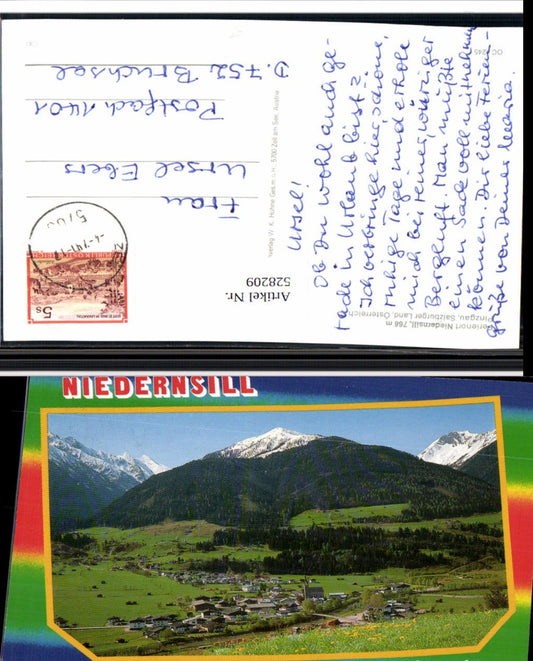 Ursel!
Ob Du wohl auch ge-
rade in Urlaub bist?
Ich verbringe hier, schöne,
ruhige Tage und erhole
mich bei reiner, würziger
Bergluft. Man müßte
einen Sack voll mitnehmen
können. Dir liebe Ferien-
grüße von Deiner Maria.
Frau
Ursel Ebers
Postfach 1401
D. 752 Bruchsal
Ferienort Niedernsill, 768 m
Pinzgau, Salzburger Land, Österreich
Verlag W. K. Hühne Ges.m.b.H., 5700 Zell am See, Austria
Artikel Nr.
528209
REPUBLIK ÖSTERREICH
5s
5700
NIEDERNSILL